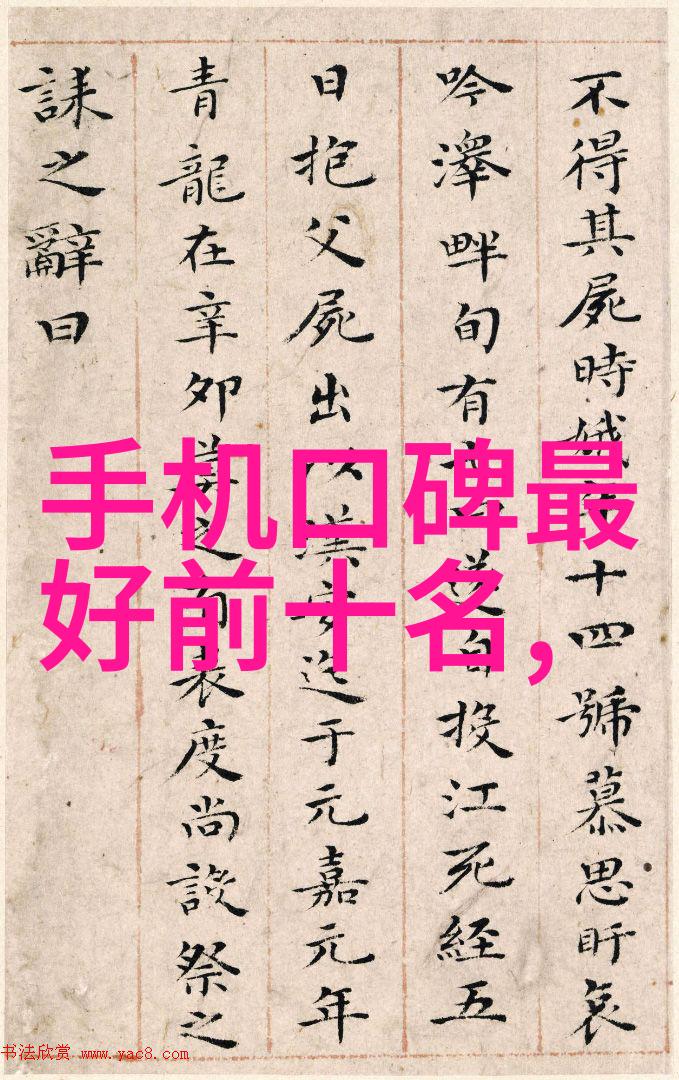 不得其屍時娥年十四號慕思盱哀
吟澤畔旬有七日遂自投江死經五
日抱父屍出以漢安迄于元嘉元年
青龍在辛夘莫之有表度尚設祭之
誄之辭曰
手机口碑最
好前十名,
书法欣赏 www.yac8.com